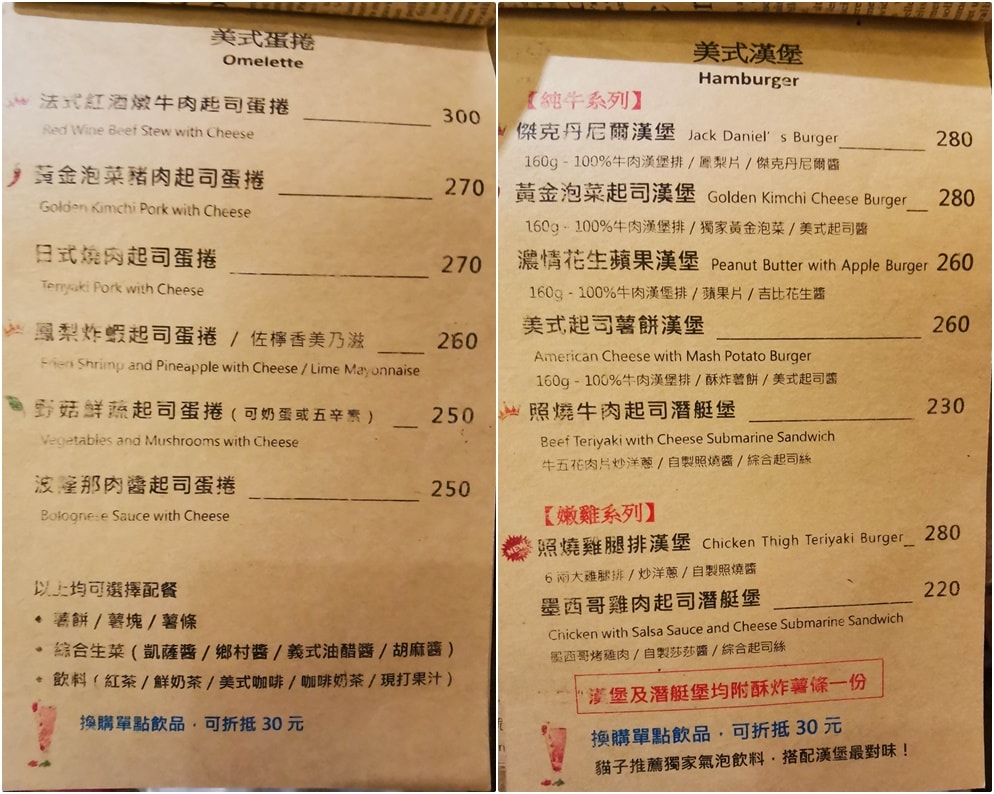 美式蛋捲
Omelette
法式紅酒燉牛肉起司蛋捲 300
Red Wine Beef Stew with Cheese
黃金泡菜豬肉起司蛋捲 270
Golden Kimchi Pork with Cheese
日式燒肉起司蛋捲 270
Teriyaki Pork with Cheese
鳳梨炸蝦起司蛋捲 / 佐檸香美乃滋 260
Fried Shrimp and Pineapple with Cheese / Lime Mayonnaise
野菇鮮蔬起司蛋捲 ( 可奶蛋或五辛素 ) 250
Vegetables and Mushrooms with Cheese
波隆那肉醬起司蛋捲 250
Bolognese Sauce with Cheese
以上均可選擇配餐
• 薯餅 / 薯塊 / 薯條
• 綜合生菜 ( 凱薩醬 / 鄉村醬 / 義式油醋醬 / 胡麻醬 )
• 飲料 ( 紅茶 / 鮮奶茶 / 美式咖啡 / 咖啡奶茶 / 現打果汁 )
換購單點飲品，可折抵 30 元
美式漢堡
Hamburger
【純牛系列】
傑克丹尼爾漢堡 Jack Daniel's Burger 280
160g - 100%牛肉漢堡排 / 鳳梨片 / 傑克丹尼爾醬
黃金泡菜起司漢堡 Golden Kimchi Cheese Burger 280
160g - 100%牛肉漢堡排 / 獨家黃金泡菜 / 美式起司醬
濃情花生蘋果漢堡 Peanut Butter with Apple Burger 260
160g - 100%牛肉漢堡排 / 蘋果片 / 吉比花生醬
美式起司薯餅漢堡 260
American Cheese with Mash Potato Burger
160g - 100%牛肉漢堡排 / 酥炸薯餅 / 美式起司醬
照燒牛肉起司潛艇堡 230
Beef Teriyaki with Cheese Submarine Sandwich
牛五花肉片炒洋蔥 / 自製照燒醬 / 綜合起司絲
【嫩雞系列】
NEW 照燒雞腿排漢堡 Chicken Thigh Teriyaki Burger 280
6 兩大雞腿排 / 炒洋蔥 / 自製照燒醬
墨西哥雞肉起司潛艇堡 220
Chicken with Salsa Sauce and Cheese Submarine Sandwich
墨西哥烤雞肉 / 自製莎莎醬 / 綜合起司絲
漢堡及潛艇堡均附酥炸薯條一份
換購單點飲品，可折抵 30 元
貓子推薦獨家氣泡飲料，搭配漢堡最對味！